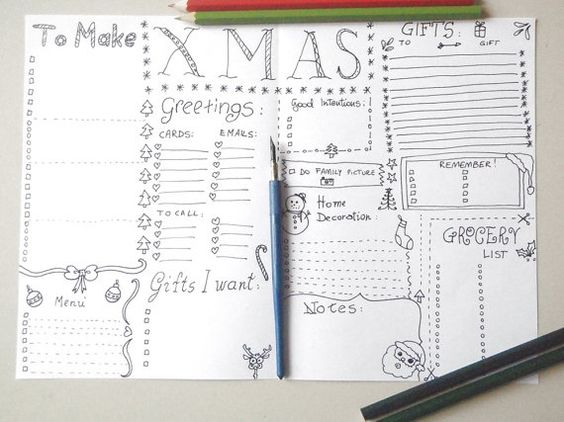 To Make
XMAS
GIFTS:
TO GIFT
Greetings:
CARDS: EMAILS:
TO CALL:
Good Intentions:
DO FAMILY PICTURE
Home
Decoration:
REMEMBER!
GROCERY
LIST
Menu
Gifts I want:
Notes: